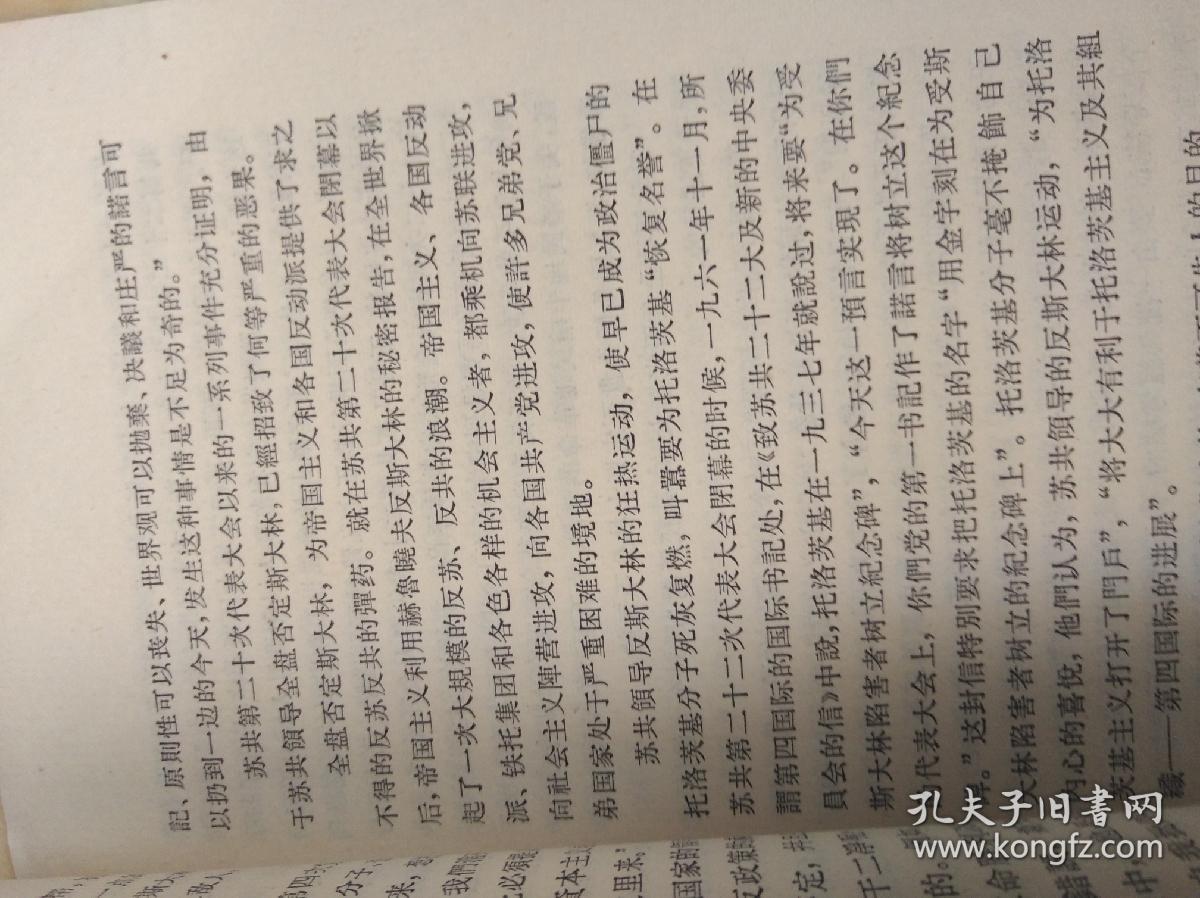 記、原則性可以丧失、世界观可以抛棄、决議和庄严的諾言可
以扔到一边的今天，发生这种事情是不足为奇的。”
苏共第二十次代表大会以来的一系列事件充分证明，由
于苏共領导全盘否定斯大林，已經招致了何等严重的恶果。
全盘否定斯大林，为帝国主义和各国反动派提供了求之
不得的反苏反共的彈药。就在苏共第二十次代表大会閉幕以
后，帝国主义利用赫魯曉夫反斯大林的秘密报告，在全世界掀
起了一次大規模的反苏、反共的浪潮。帝国主义、各国反动
派、铁托集团和各色各样的机会主义者，都乘机向苏联进攻，
向社会主义陣营进攻，向各国共产党进攻，使許多兄弟党、兄
弟国家处于严重困难的境地。
苏共領导反斯大林的狂热运动，使早已成为政治僵尸的
托洛茨基分子死灰复燃，叫囂要为托洛茨基“恢复名誉”。在
苏共第二十二次代表大会閉幕的时候，一九六一年十一月，所
謂第四国际的国际书記处，在《致苏共二十二大及新的中央委
員会的信》中說，托洛茨基在一九三七年就說过，将来要“为受
斯大林陷害者树立紀念碑”，“今天这一預言实現了。在你們
代表大会上，你們党的第一书記作了諾言将树立这个紀念
碑。”这封信特別要求把托洛茨基的名字“用金字刻在为受斯
大林陷害者树立的紀念碑上”。托洛茨基分子毫不掩飾自己
内心的喜悅，他們认为，苏共領导的反斯大林运动，“为托洛
茨基主义打开了門戶”，“将大大有利于托洛茨基主义及其組
織——第四国际的进展”。
我們
必須
資本主
里来，
国家的
反政策
孔夫子旧書网
www.kongfz.com